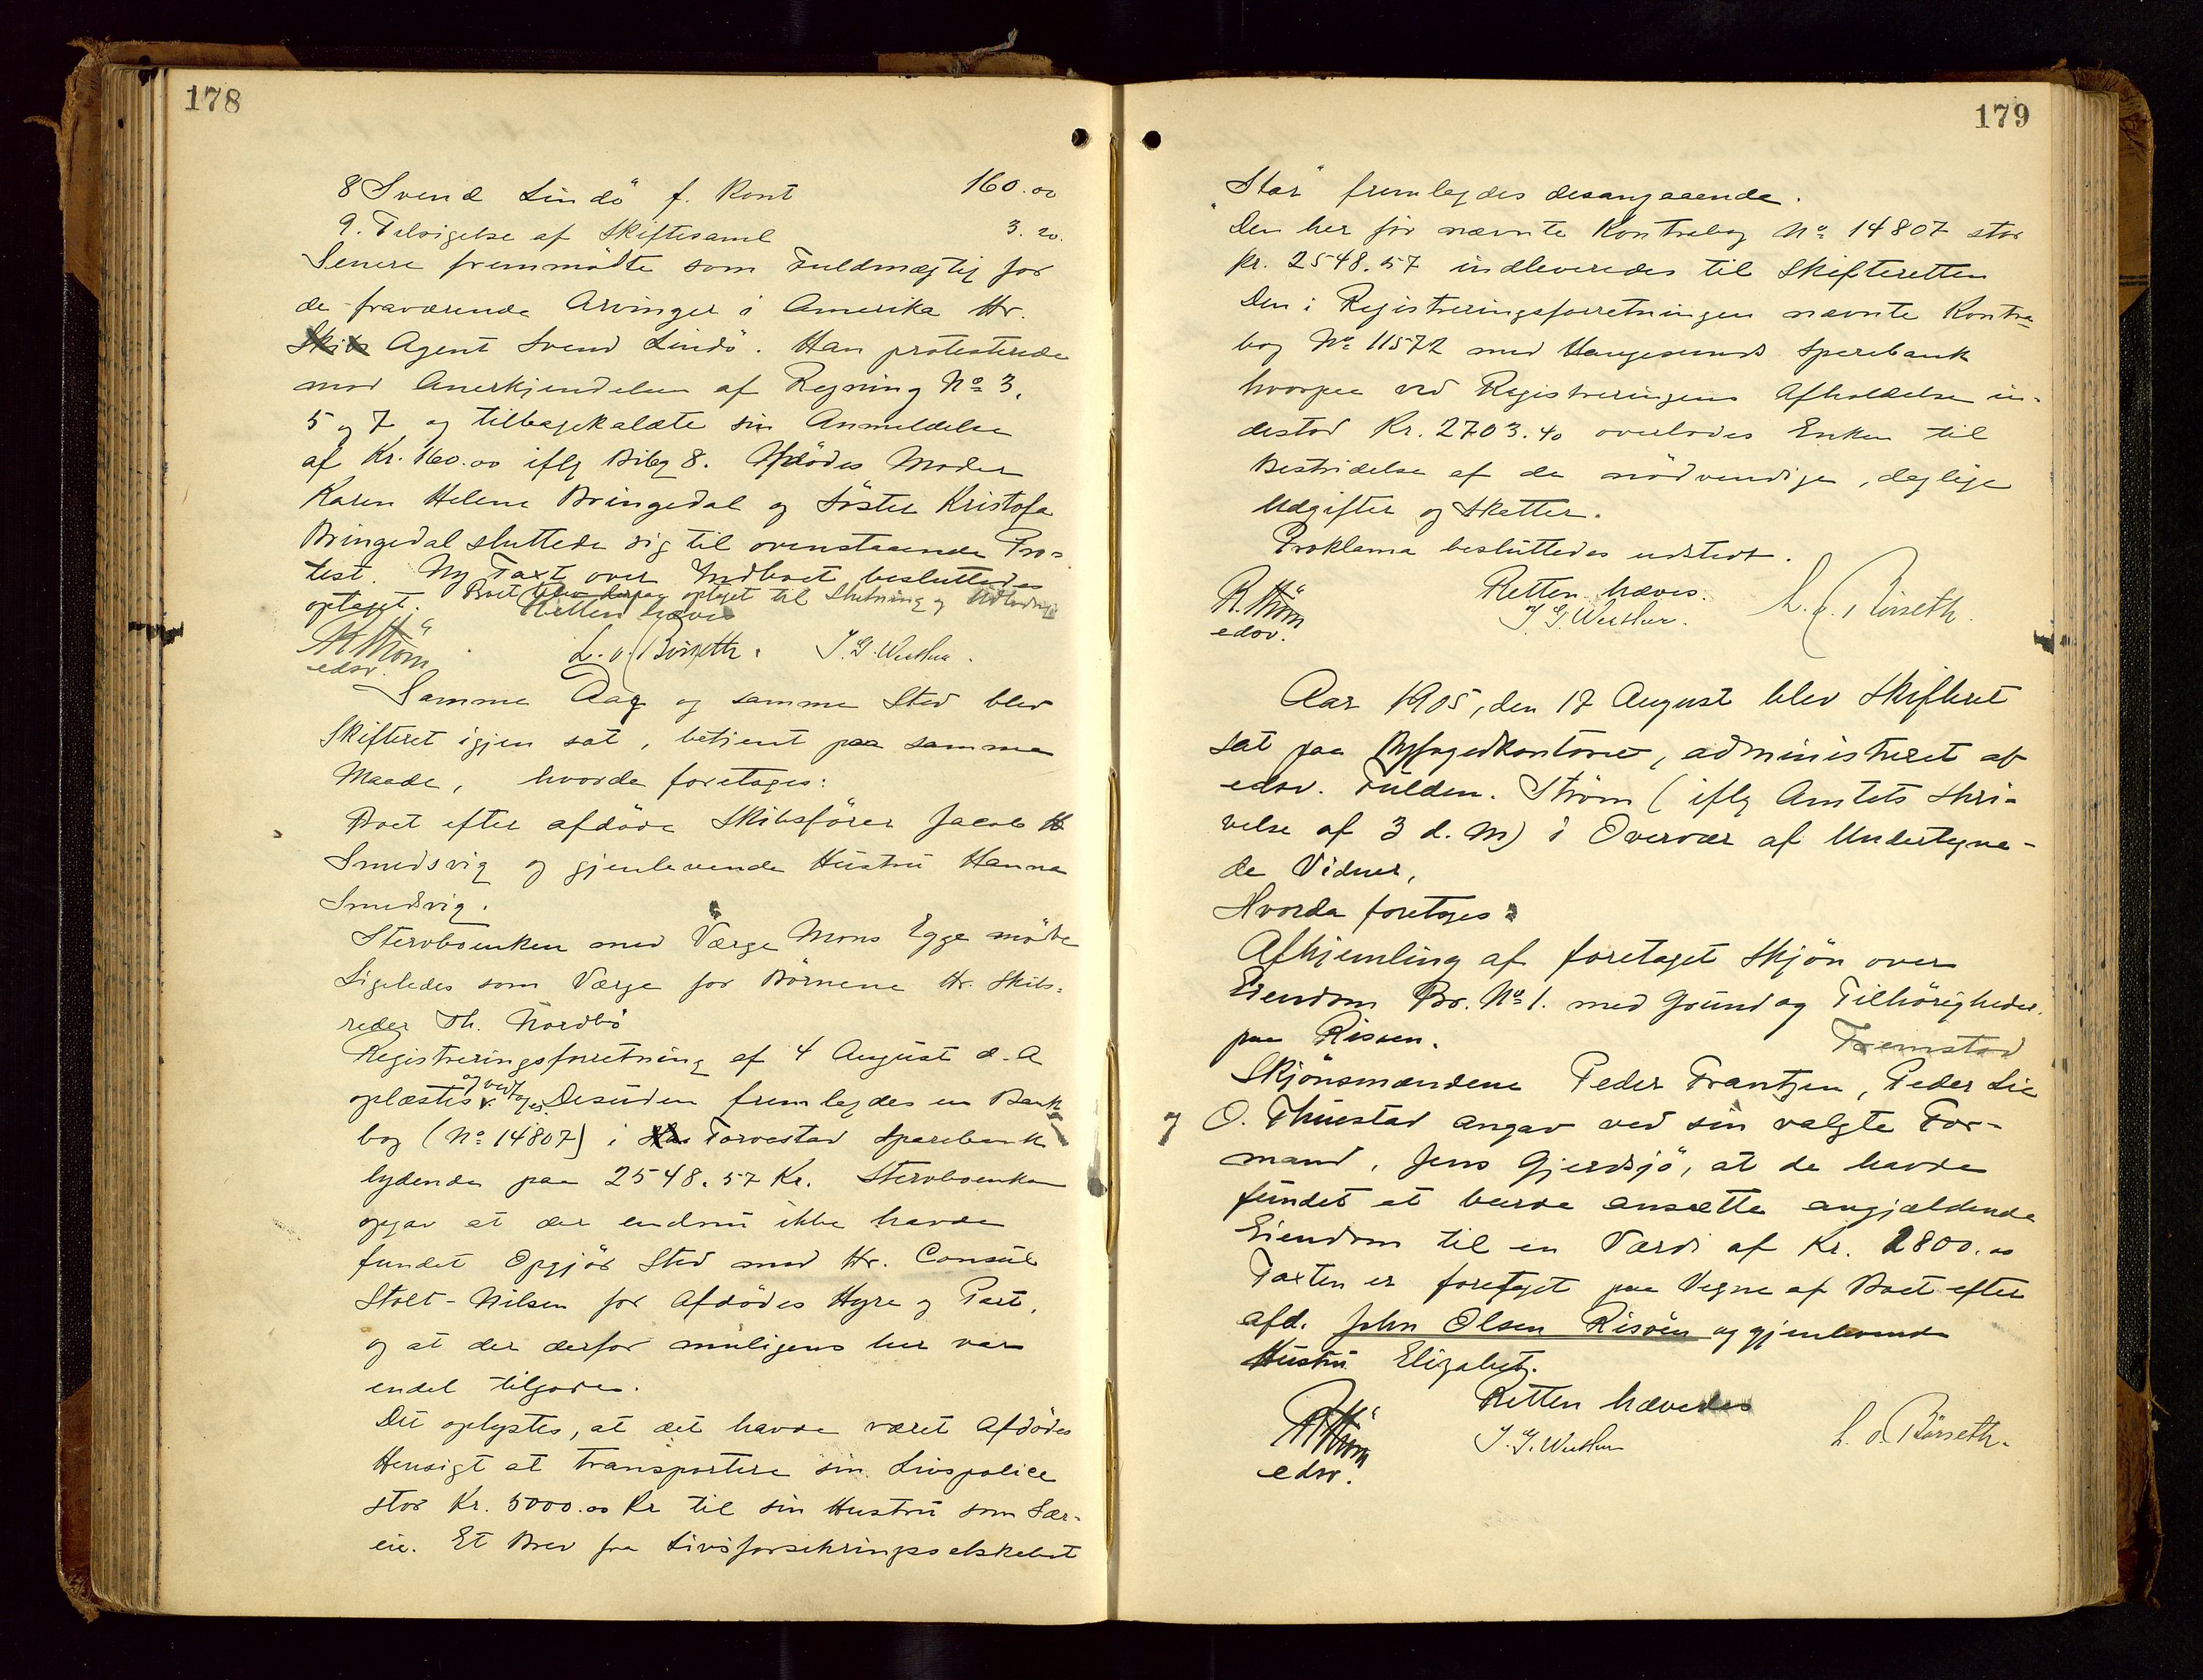 178
8 Svend Lindö f. Kont 160.00
9. Tilsigelse af Skiftesaml 3.20.
Senere fremmödte som Fuldmægtig for
de fraværende Arvinger i Amerika Hr.
Agent Svend Lindö. Han protesterede
mod Anerkjendelsen af Regning No 3,
5 og 7 og tilbagekaldte sin Anmeldelse
af Kr. 160.00 iflg Bilag 8. Afdödes Moder
Karen Helene Bringedal og Söster Kristofa
Bringedal sluttede sig til ovenstaaende Pro-
test. Ny Taxt over Indboet besluttedes
optaget. Boet blev derpaa optaget til Slutning og Udlodning
Retten hæves
R Ström
edsv.
L. O. Börseth. J. G. Wester.
Samme Dag og samme Sted blev
Skifteret igjen sat, betjent paa samme
Maade, hvorda foretoges:
Boet efter afdöde Skibsförer Jacob H
Smedsvig og gjenlevende Hustru Hanna
Smedsvig.
Stervboenken med Værge Mons Egge mödte
Ligeledes som Værge for Börnene Hr. Skibs-
reder Th. Nordbö
Registreringsforretning af 4 August d. A
oplæstes og vedtoges. Desuden fremlagdes en Bank
bog (No 14807) i Torvestad Sparebank
lydende paa 2548.57 Kr. Stervboenken
opgav at der endnu ikke havde
fundet Opgjör Sted med Hr. Consul
Stolt-Nilsen for Afdödes Hyre og Part,
og at der derfor muligens her var
endel tilgode.
Det oplystes, at det havde været Afdödes
Hensigt at transportere sin Livspolice
stor Kr. 5000.00 Kr til sin Hustru som Sær-
eie. Et Brev fra Livsforsikringsselskabet
179
"Star" fremlagdes desangaaende.
Den her för nævnte Kontrabog No 14807 stor
kr. 2548.57 indleveredes til Skifteretten
Den i Registreringsforretningen nævnte Kontra-
bog No 11572 med Haugesunds Sparebank
hvorpaa ved Registreringens Afholdelse in-
destod Kr. 2703.40 overlodes Enken til
Bestridelse af de nödvendige, daglige
Udgifter og Skatter.
Proklama besluttedes udstedt.
Retten hæves.
R. Ström
edsv.
J G Wester. L. O. Börseth.
Aar 1905, den 17 August blev Skifteret
sat paa Byfogedkontoret, administreret af
edsv. Fuldm. Ström (iflg Amtets Skri-
velse af 3 d. M) i Overvær af Undertegne-
de Vidner,
Hvorda foretoges:
Afhjemling af foretaget Skjön over
Eiendom Br. No 1. med Grund og Tilhörigheder.
paa Risöen. Fremstod
Skjönsmændene Peder Frantzen, Peder Lie
og O. Thuestad angav ved sin valgte For-
mand, Jens Gjerdsjö, at de havde
fundet at burde ansætte angjældende
Eiendom til en Værdi af Kr. 2800.00
Taxten er foretaget paa Vegne af Boet efter
afd. John Olsen Risöen og gjenlevende
Hustru Elizabet.
Retten hævedes
R Ström
edsv.
J. G. Wester L. O. Börseth.